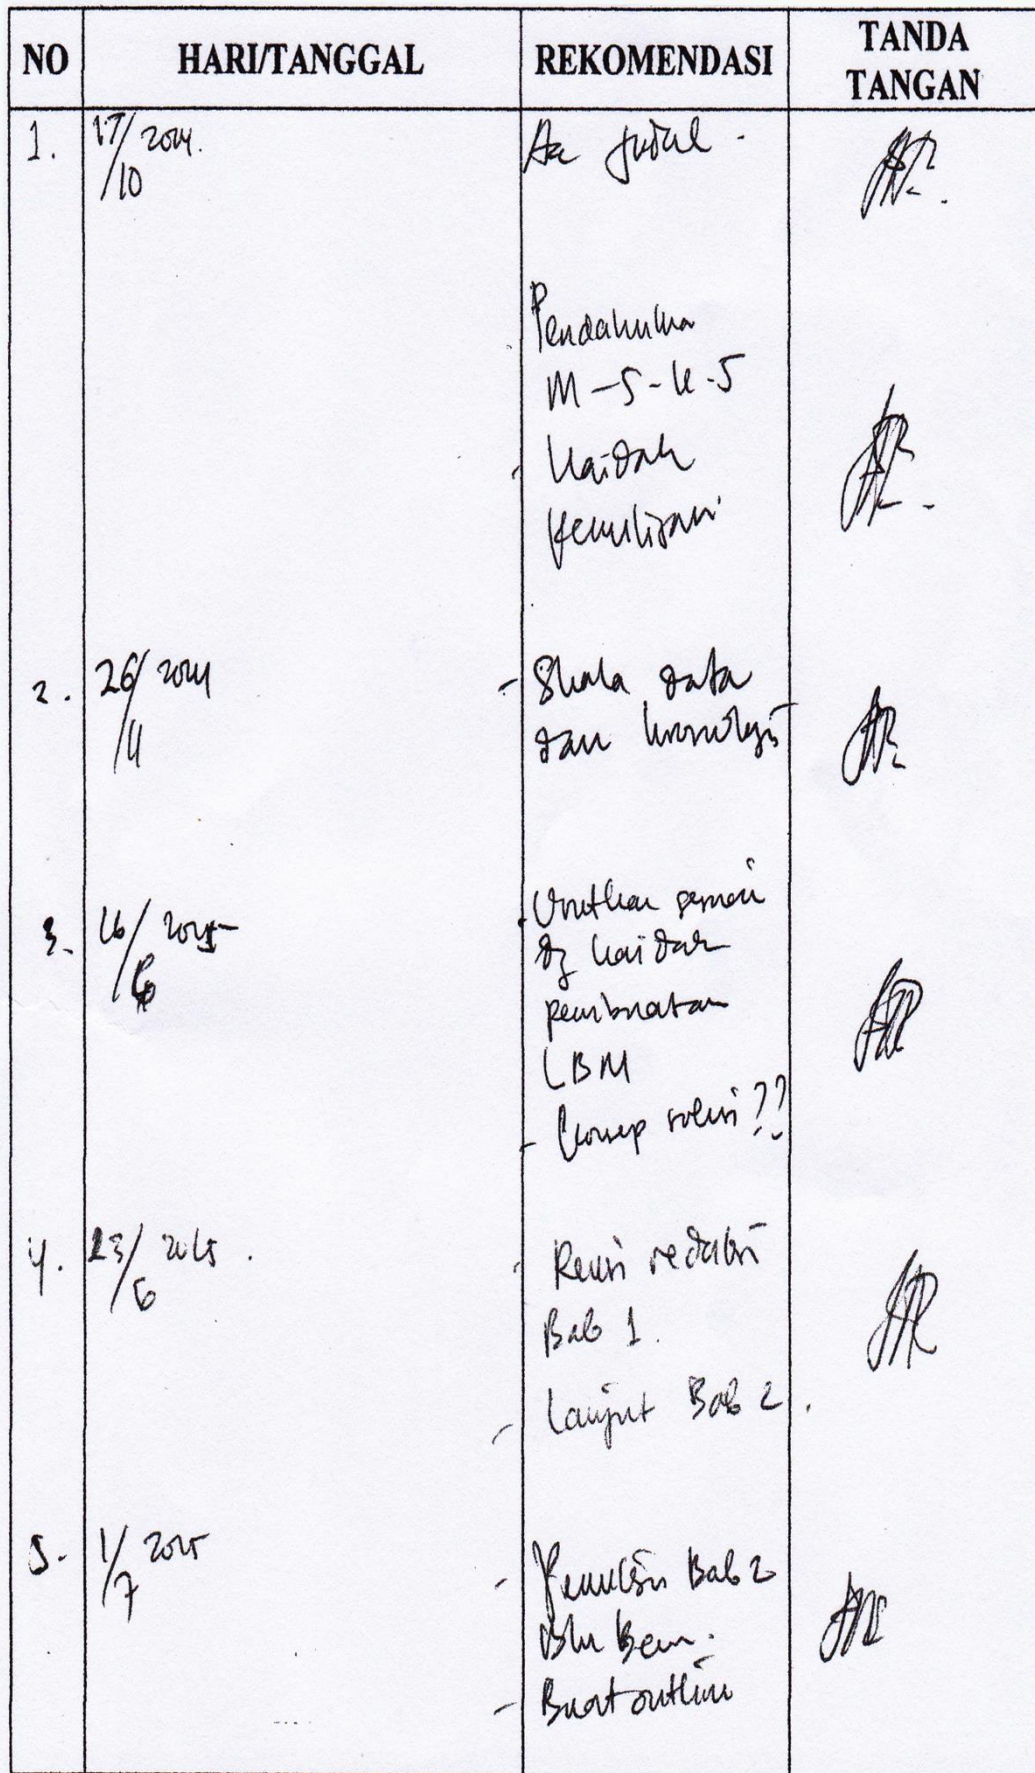 NO HARI/TANGGAL REKOMENDASI TANDA TANGAN
1. 17/10 2024. Acc judul -
- Pendahuluan
M-S-K-S
- Kaidah
Penulisan
2. 26/11 2024 - Skala data
dan kronologis
3. 16/6 2025 - Urutkan sesuai
dg kaidah
pembuatan
LBM
- Konsep solusi??
4. 23/6 2025. - Revisi redaksi
Bab 1.
- Lanjut Bab 2.
5. 1/7 2025 - Penulisan Bab 2
Blm Benar.
- Buat outline